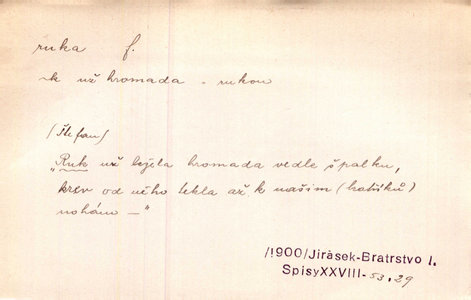 ruka f.
~k už hromada - rukou
(Štefan)
„Ruk už ležela hromada vedle špalku,
krev od něho tekla až k našim (katíků)
nohám —"
/1900/Jirásek-Bratrstvo I.
Spisy XXVIII-53.29